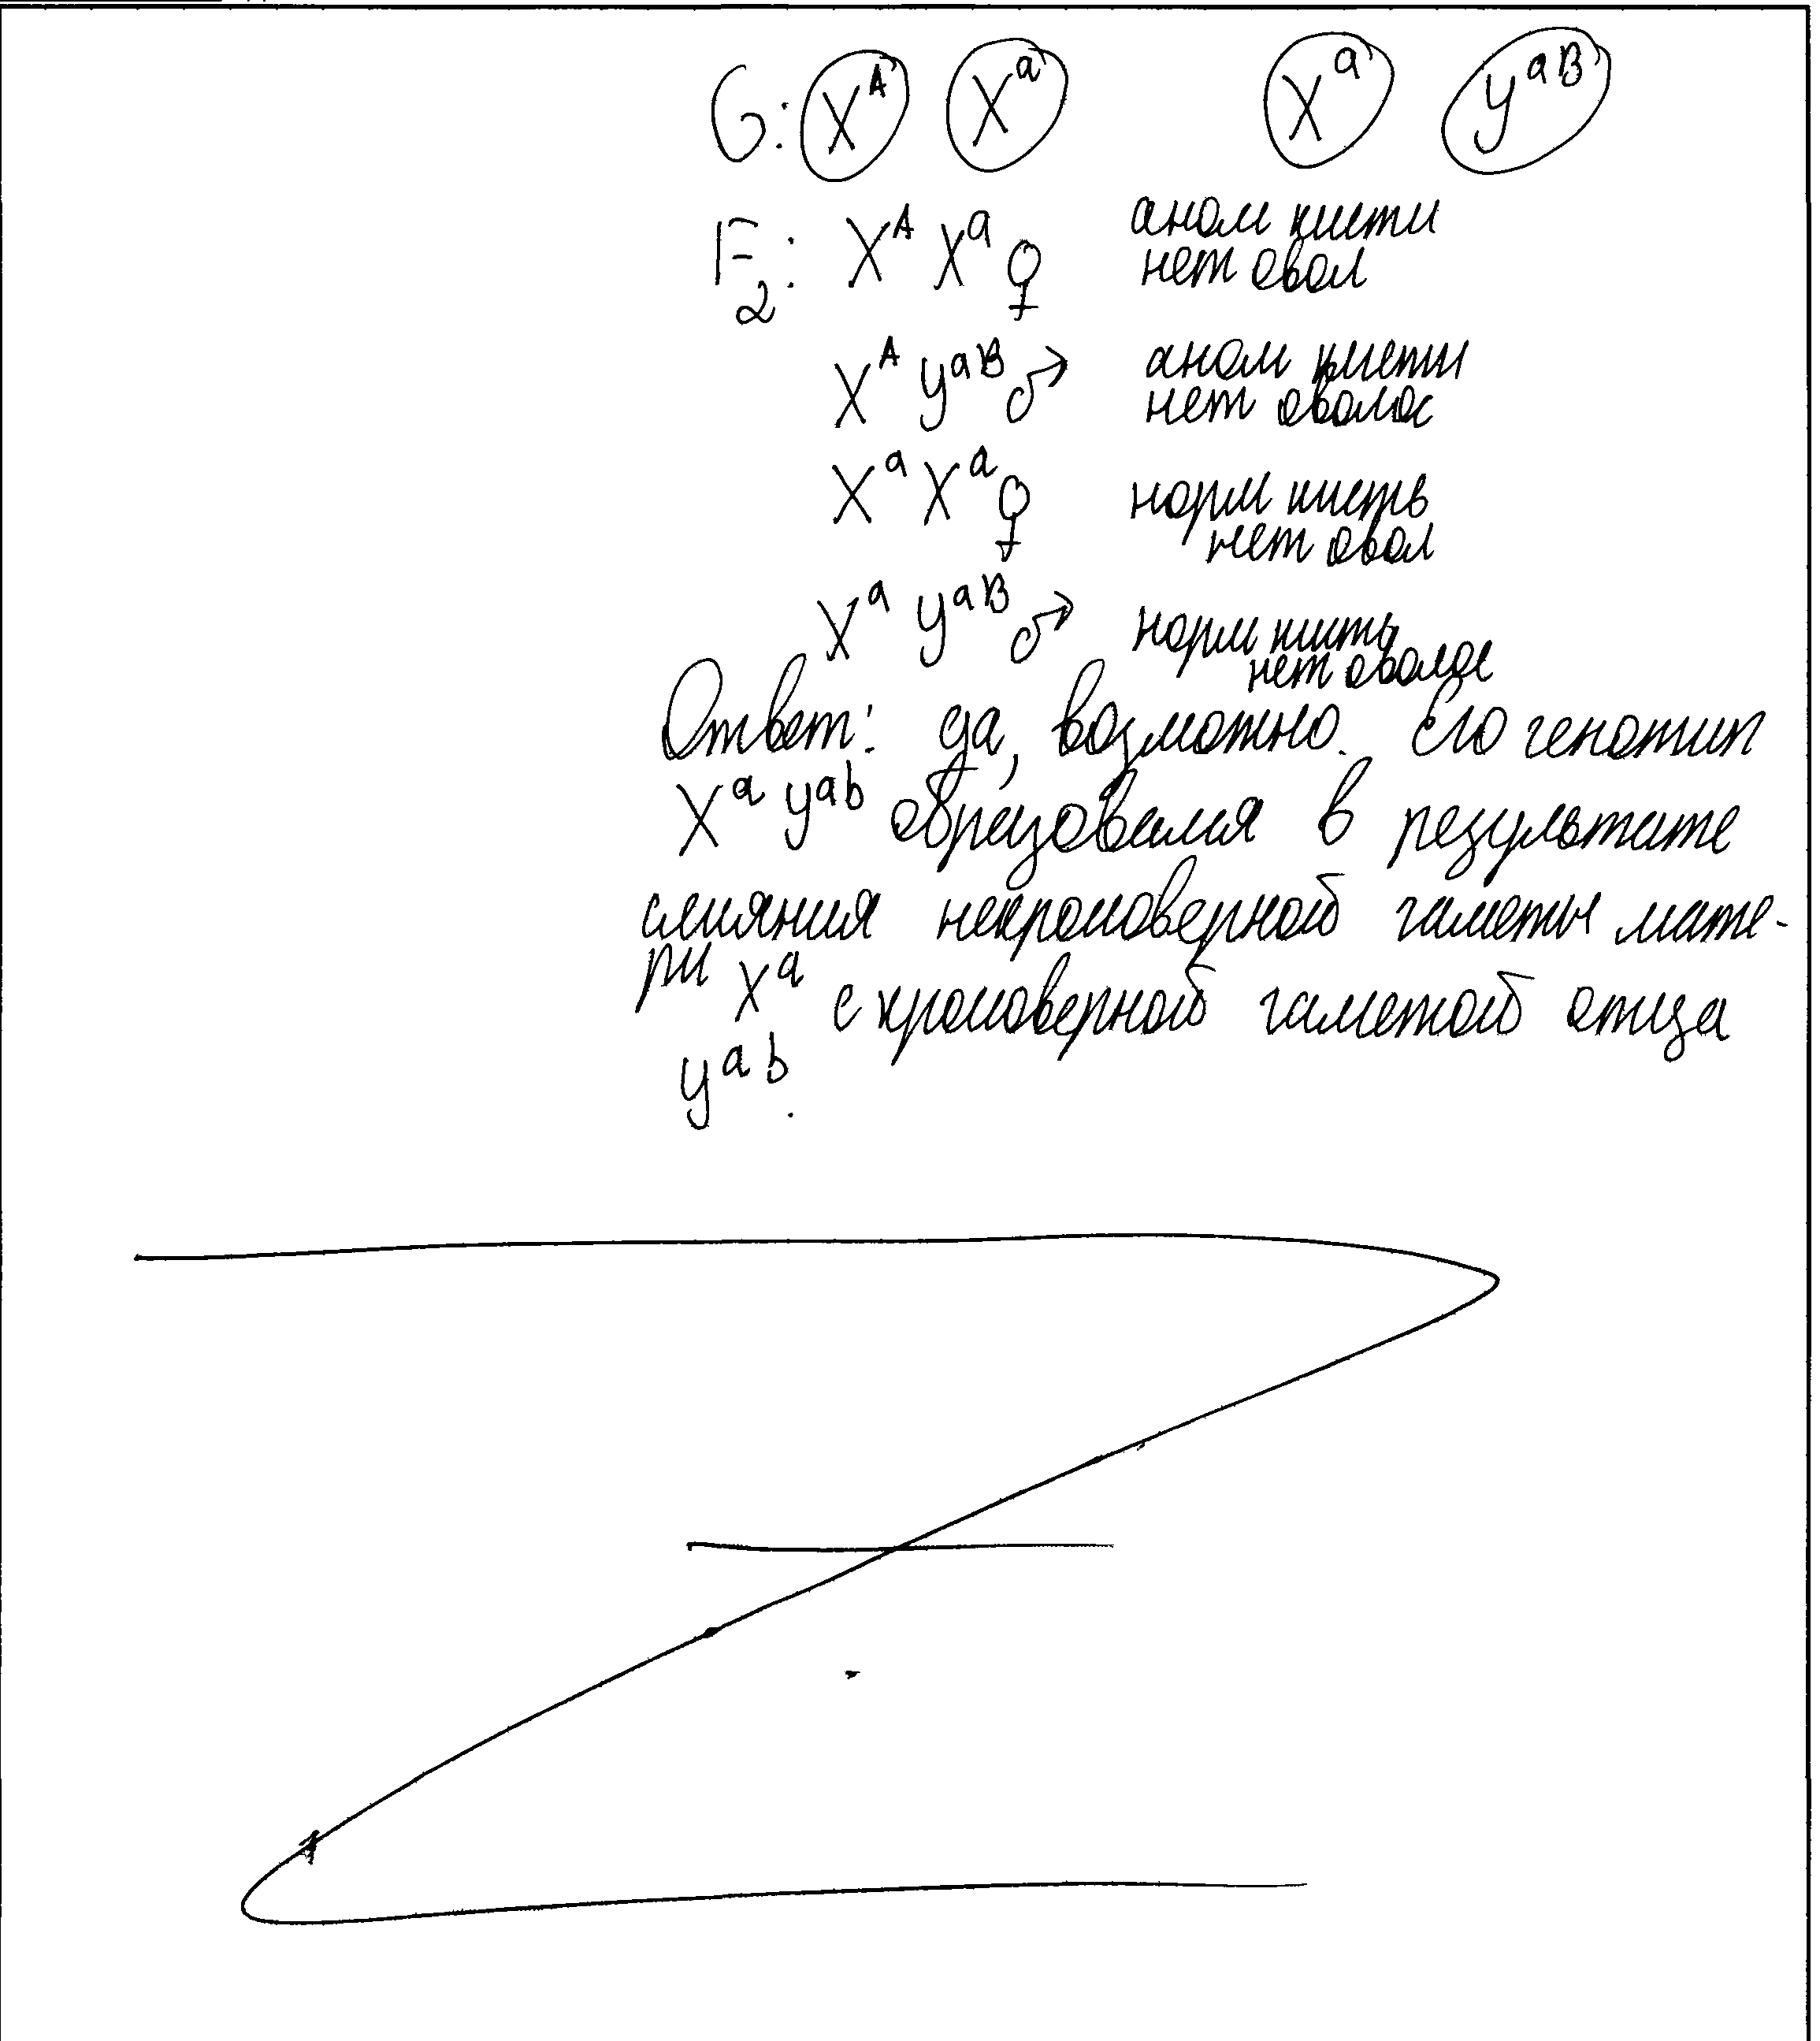 G: X^A X^a X^a y^aB
F2: X^A X^a ♀ аном кисти
нет овол
X^A y^aB ♂ аном кисти
нет оволос
X^a X^a ♀ норм кисть
нет овол
X^a y^aB ♂ норм кисть
нет оволос
Ответ: да, возможно. Его генотип
X^a y^ab образовался в результате
слияния некроссоверной гаметы мате-
ри X^a с кроссоверной гаметой отца
y^ab.